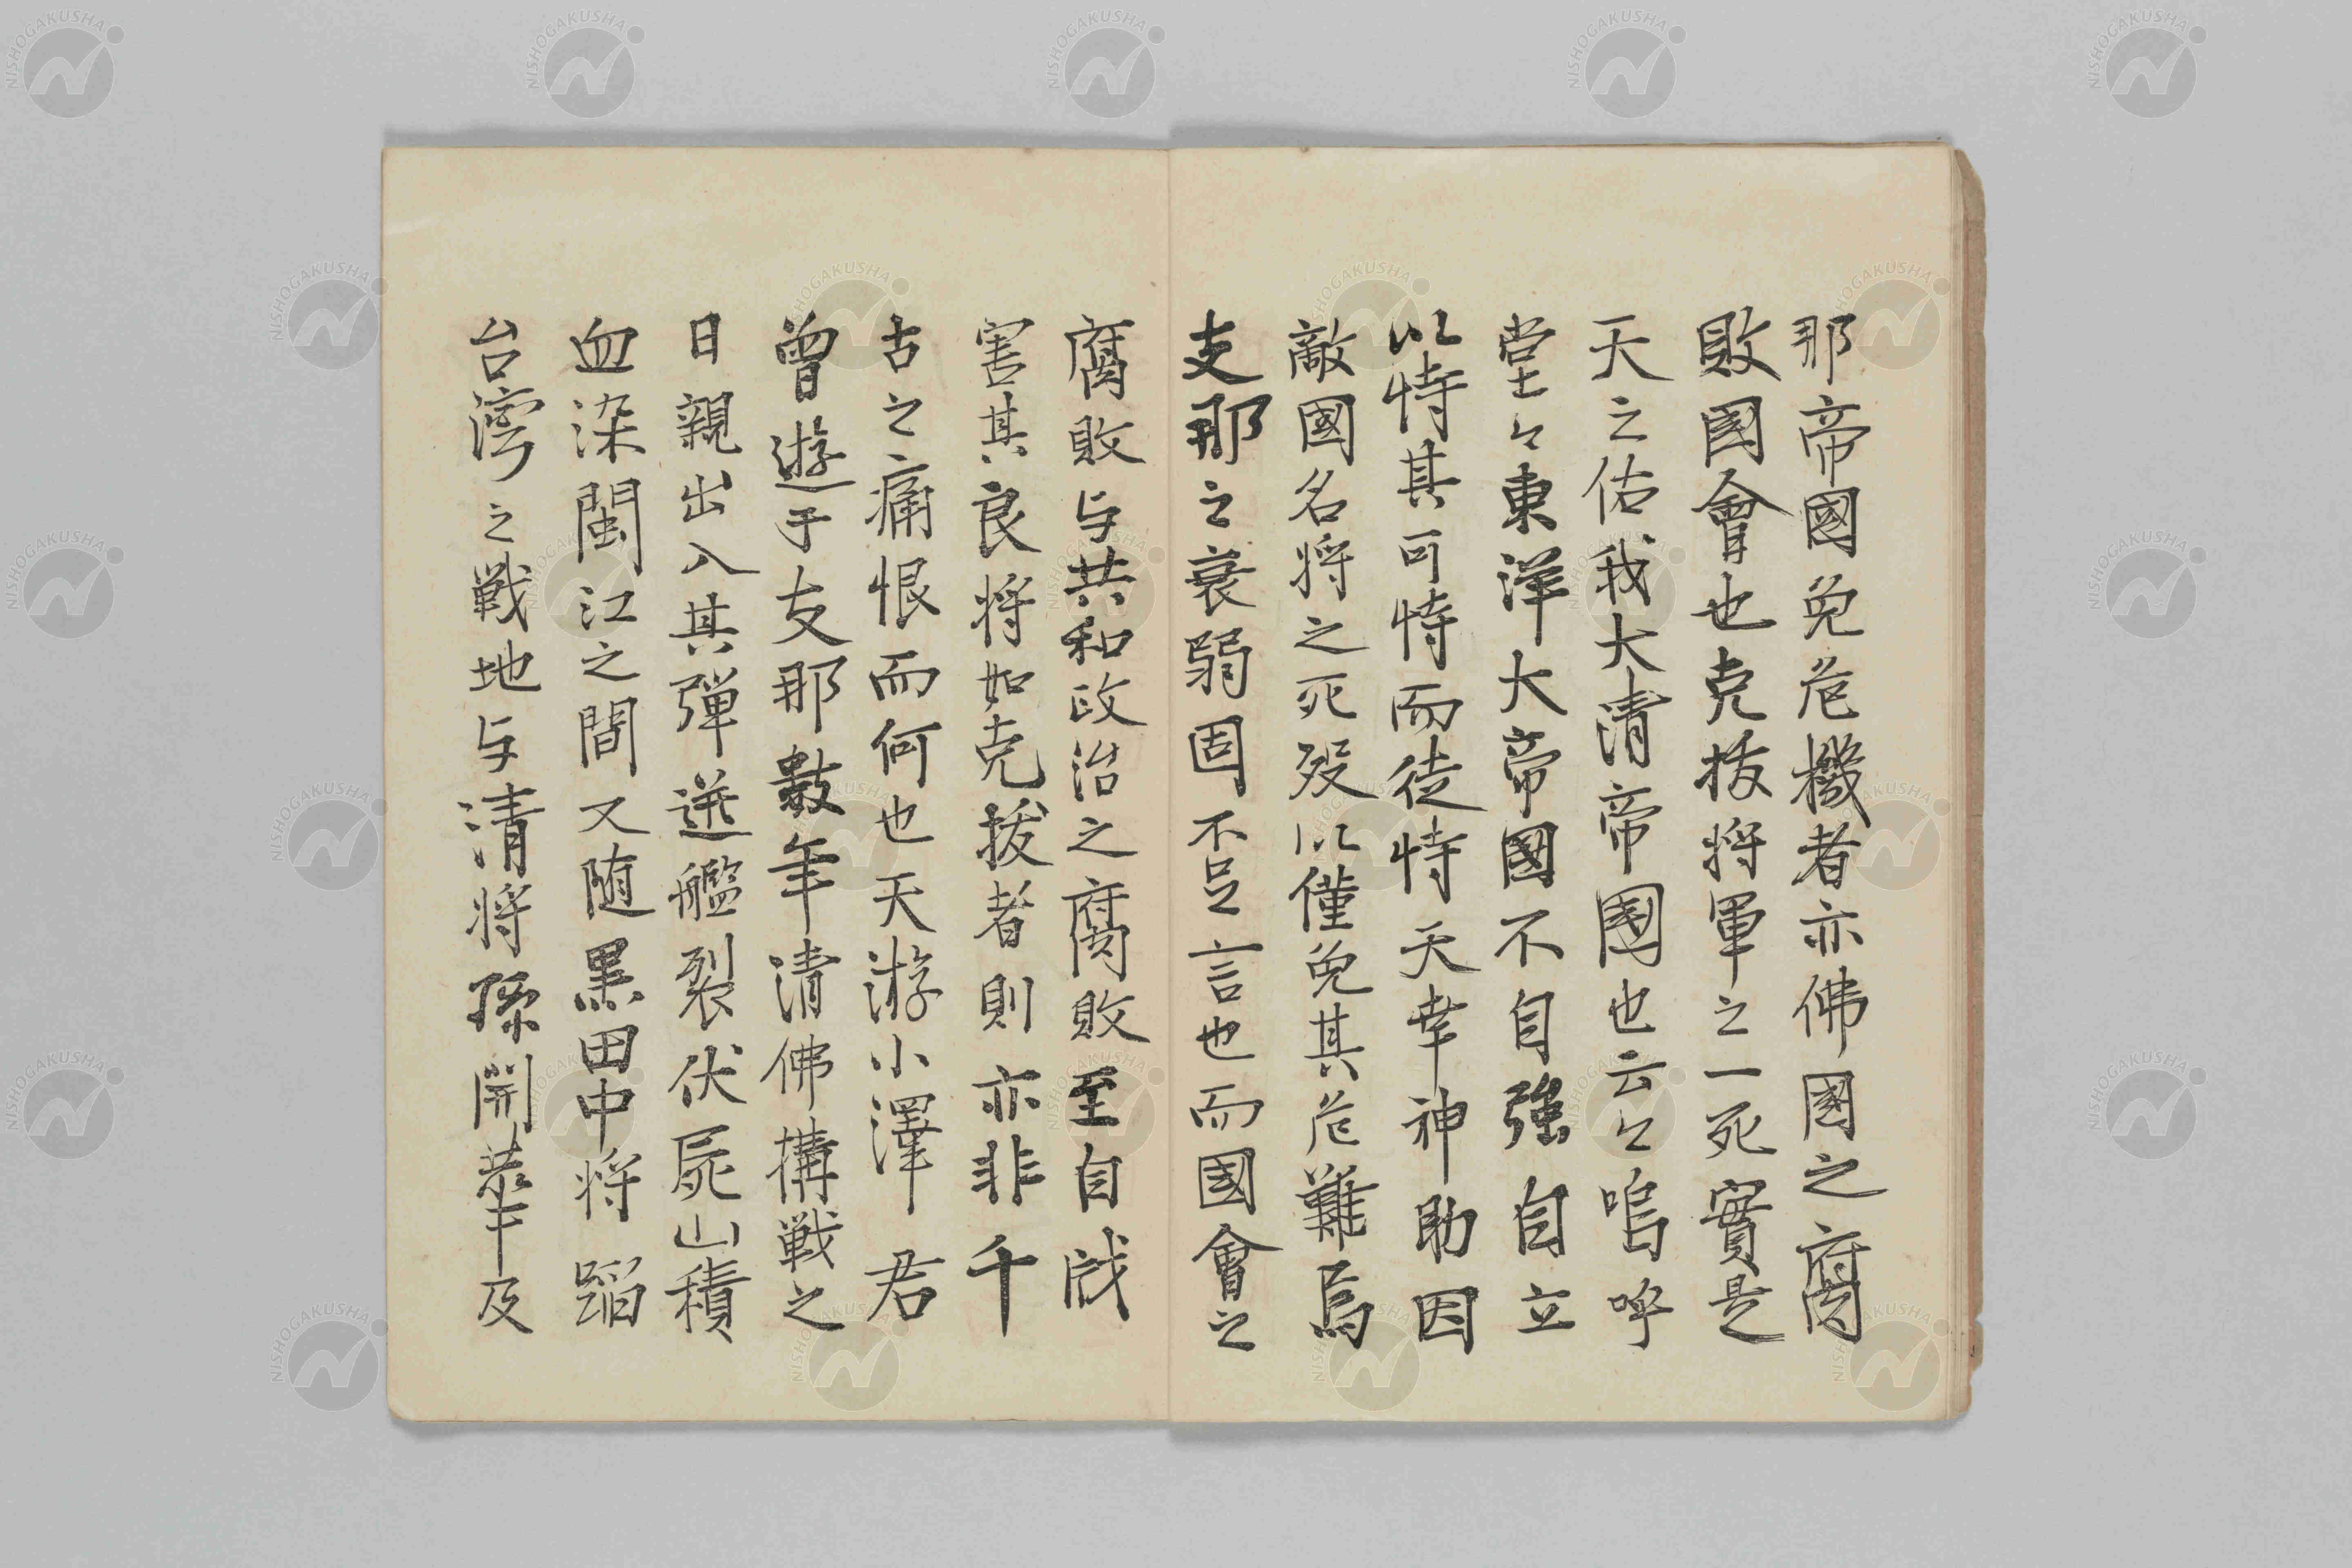 那帝國免危機者亦佛國之腐
敗國會也克拔将軍之一死實是
天之佑我大清帝國也云々嗚呼
堂々東洋大帝國不自強自立
以恃其可恃而徒恃天幸神助因
敵國名将之死歿以僅免其危難焉
支那之衰弱固不足言也而國會之
腐敗与共和政治之腐敗至自戕
害其良将如克拔者則亦非千
古之痛恨而何也天游小澤君
曾遊于支那數年清佛搆戦之
日親出入其彈迸艦裂伏屍山積
血染閩江之間又随黒田中将蹈
台湾之戦地与清将孫開華及
NISHOGAKUSHA